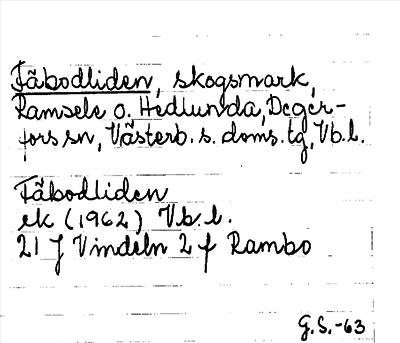 Fäbodliden, skogsmark,
Ramsele o. Hedlunda, Deger-
fors sn, Västerb. s. doms. tg, Vb. l.
Fäbodliden
ek (1962) Vb. l.
21 J Vindeln 2 f Rambo
G.S.-63